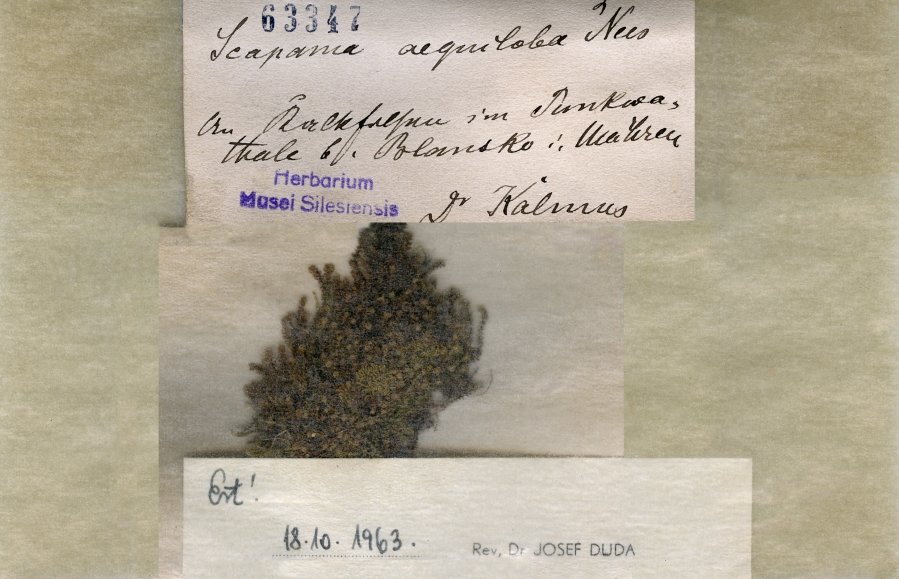 63347
Scapania aequiloba Nees
An Kalkfelsen im Punkwa-
thale bj. Blansko i. Mähren
Herbarium
Musei Silesiensis
Dr Kalmus
Est!
18.10.1963.
Rev, Dr JOSEF DUDA